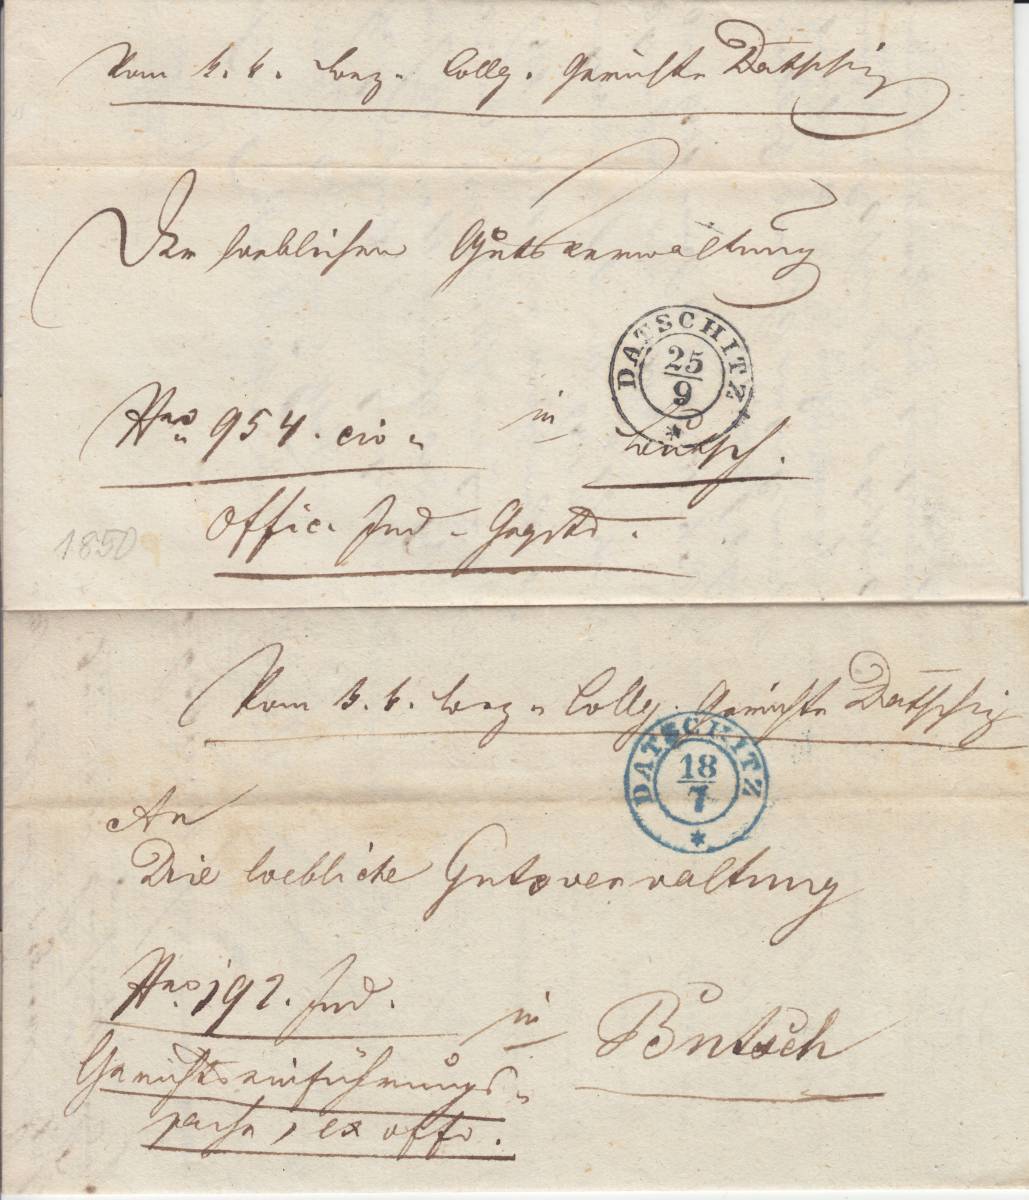 Vom k. k. Bez. Collg. Gerichte Datschitz
Der loeblichen Gutsverwaltung
DATSCHITZ
25
9
in
Butsch.
Nro 954. civ.
Offic. Jud.
1850
Vom k. k. Bez. Collg. Gerichte Datschitz
DATSCHITZ
18
7
An
Die loebliche Gutsverwaltung
Nro 192. Jud.
in
Butsch
Gerichtseinführungs-
sache, ex offo.